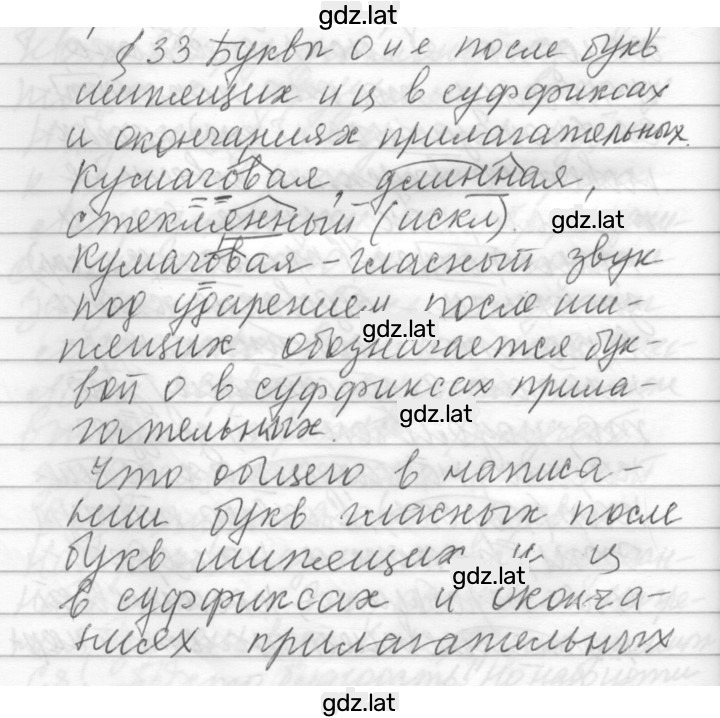 gdz.lat
§33 Буквы о и е после букв
шипящих и ц в суффиксах
и окончаниях прилагательных.
Кумачовая, длинная,
стеклянный (искл).
gdz.lat
Кумачовая - гласный звук
под ударением после ши-
gdz.lat
пящих обозначается бук-
вой о в суффиксах прила-
gdz.lat
гательных.
Что общего в написа-
нии букв гласных после
букв шипящих и ц
gdz.lat
в суффиксах и оконча-
ниях прилагательных
gdz.lat